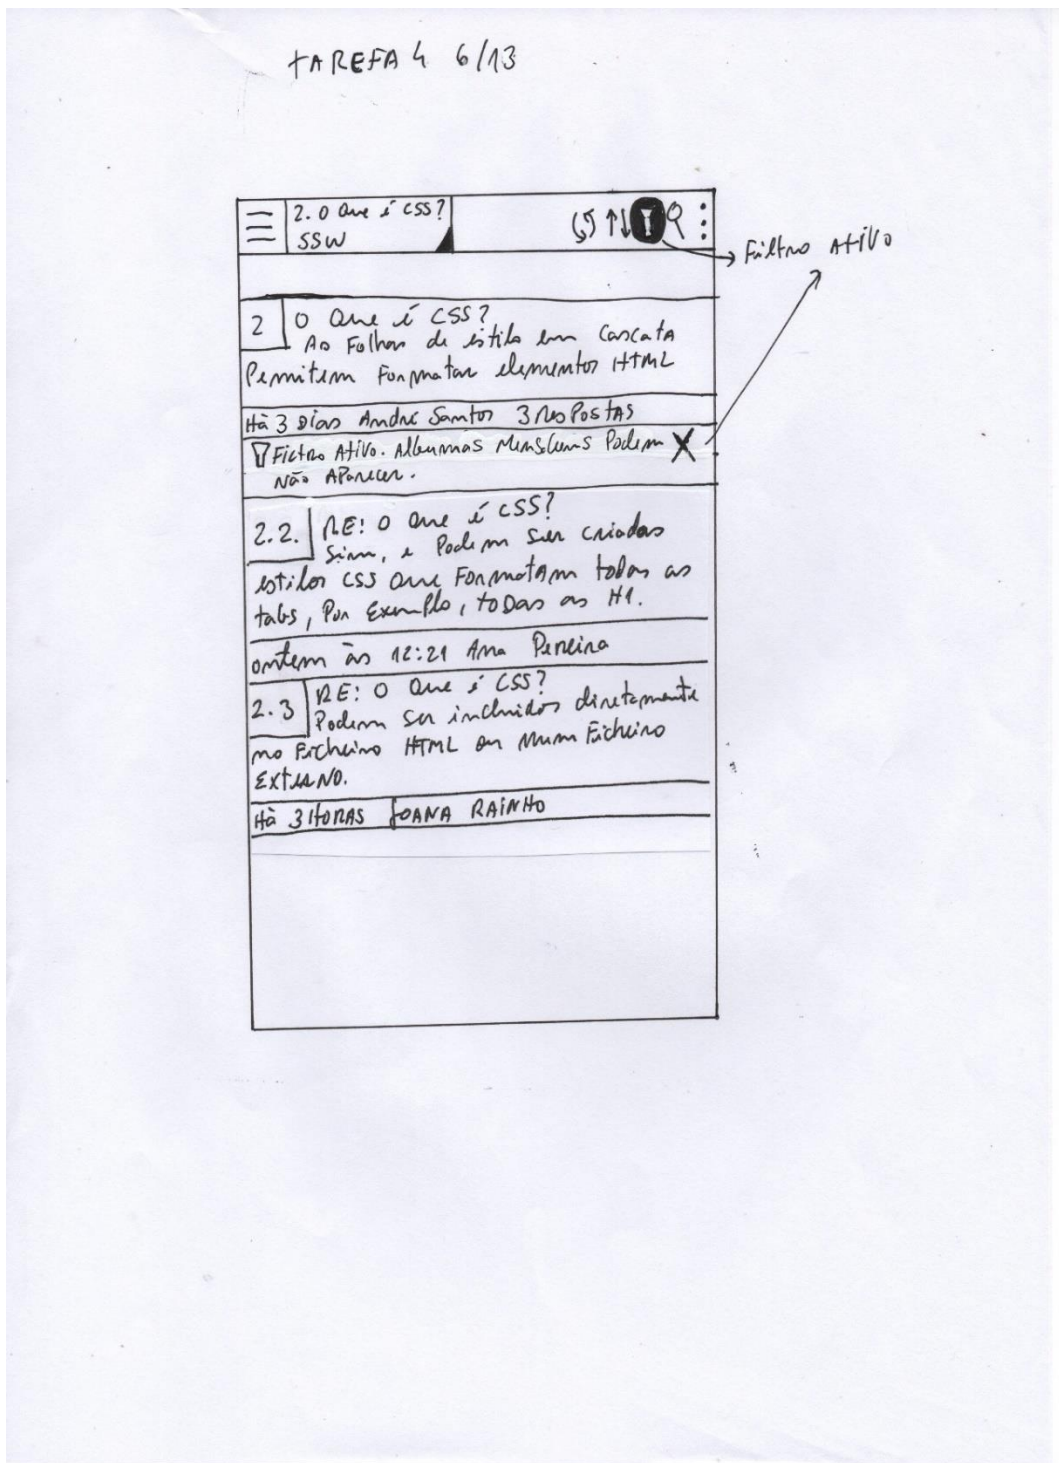 TAREFA 4 6/13
2. O Que é CSS?
SSW
Filtro Ativo
2 O Que é CSS?
As Folhas de estilo em Cascata
Permitem Formatar elementos HTML
Há 3 Dias André Santos 3 ResPostas
Filtro Ativo. Algumas Mensagens Podem X
Não Aparecer.
2.2. RE: O Que é CSS?
Sim, e Podem Ser criados
estilos CSS Que Formatam todas as
tags, Por Exemplo, todas as H1.
ontem às 12:21 Ana Pereira
2.3 RE: O Que é CSS?
Podem ser incluidos diretamente
no Ficheiro HTML ou num Ficheiro
EXTERNO.
Há 3 HORAS JOANA RAINHO